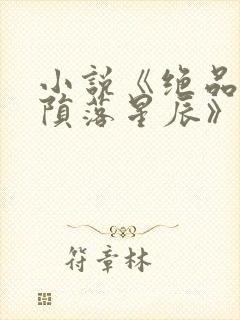 小说《绝品
陨落星辰》
符章林